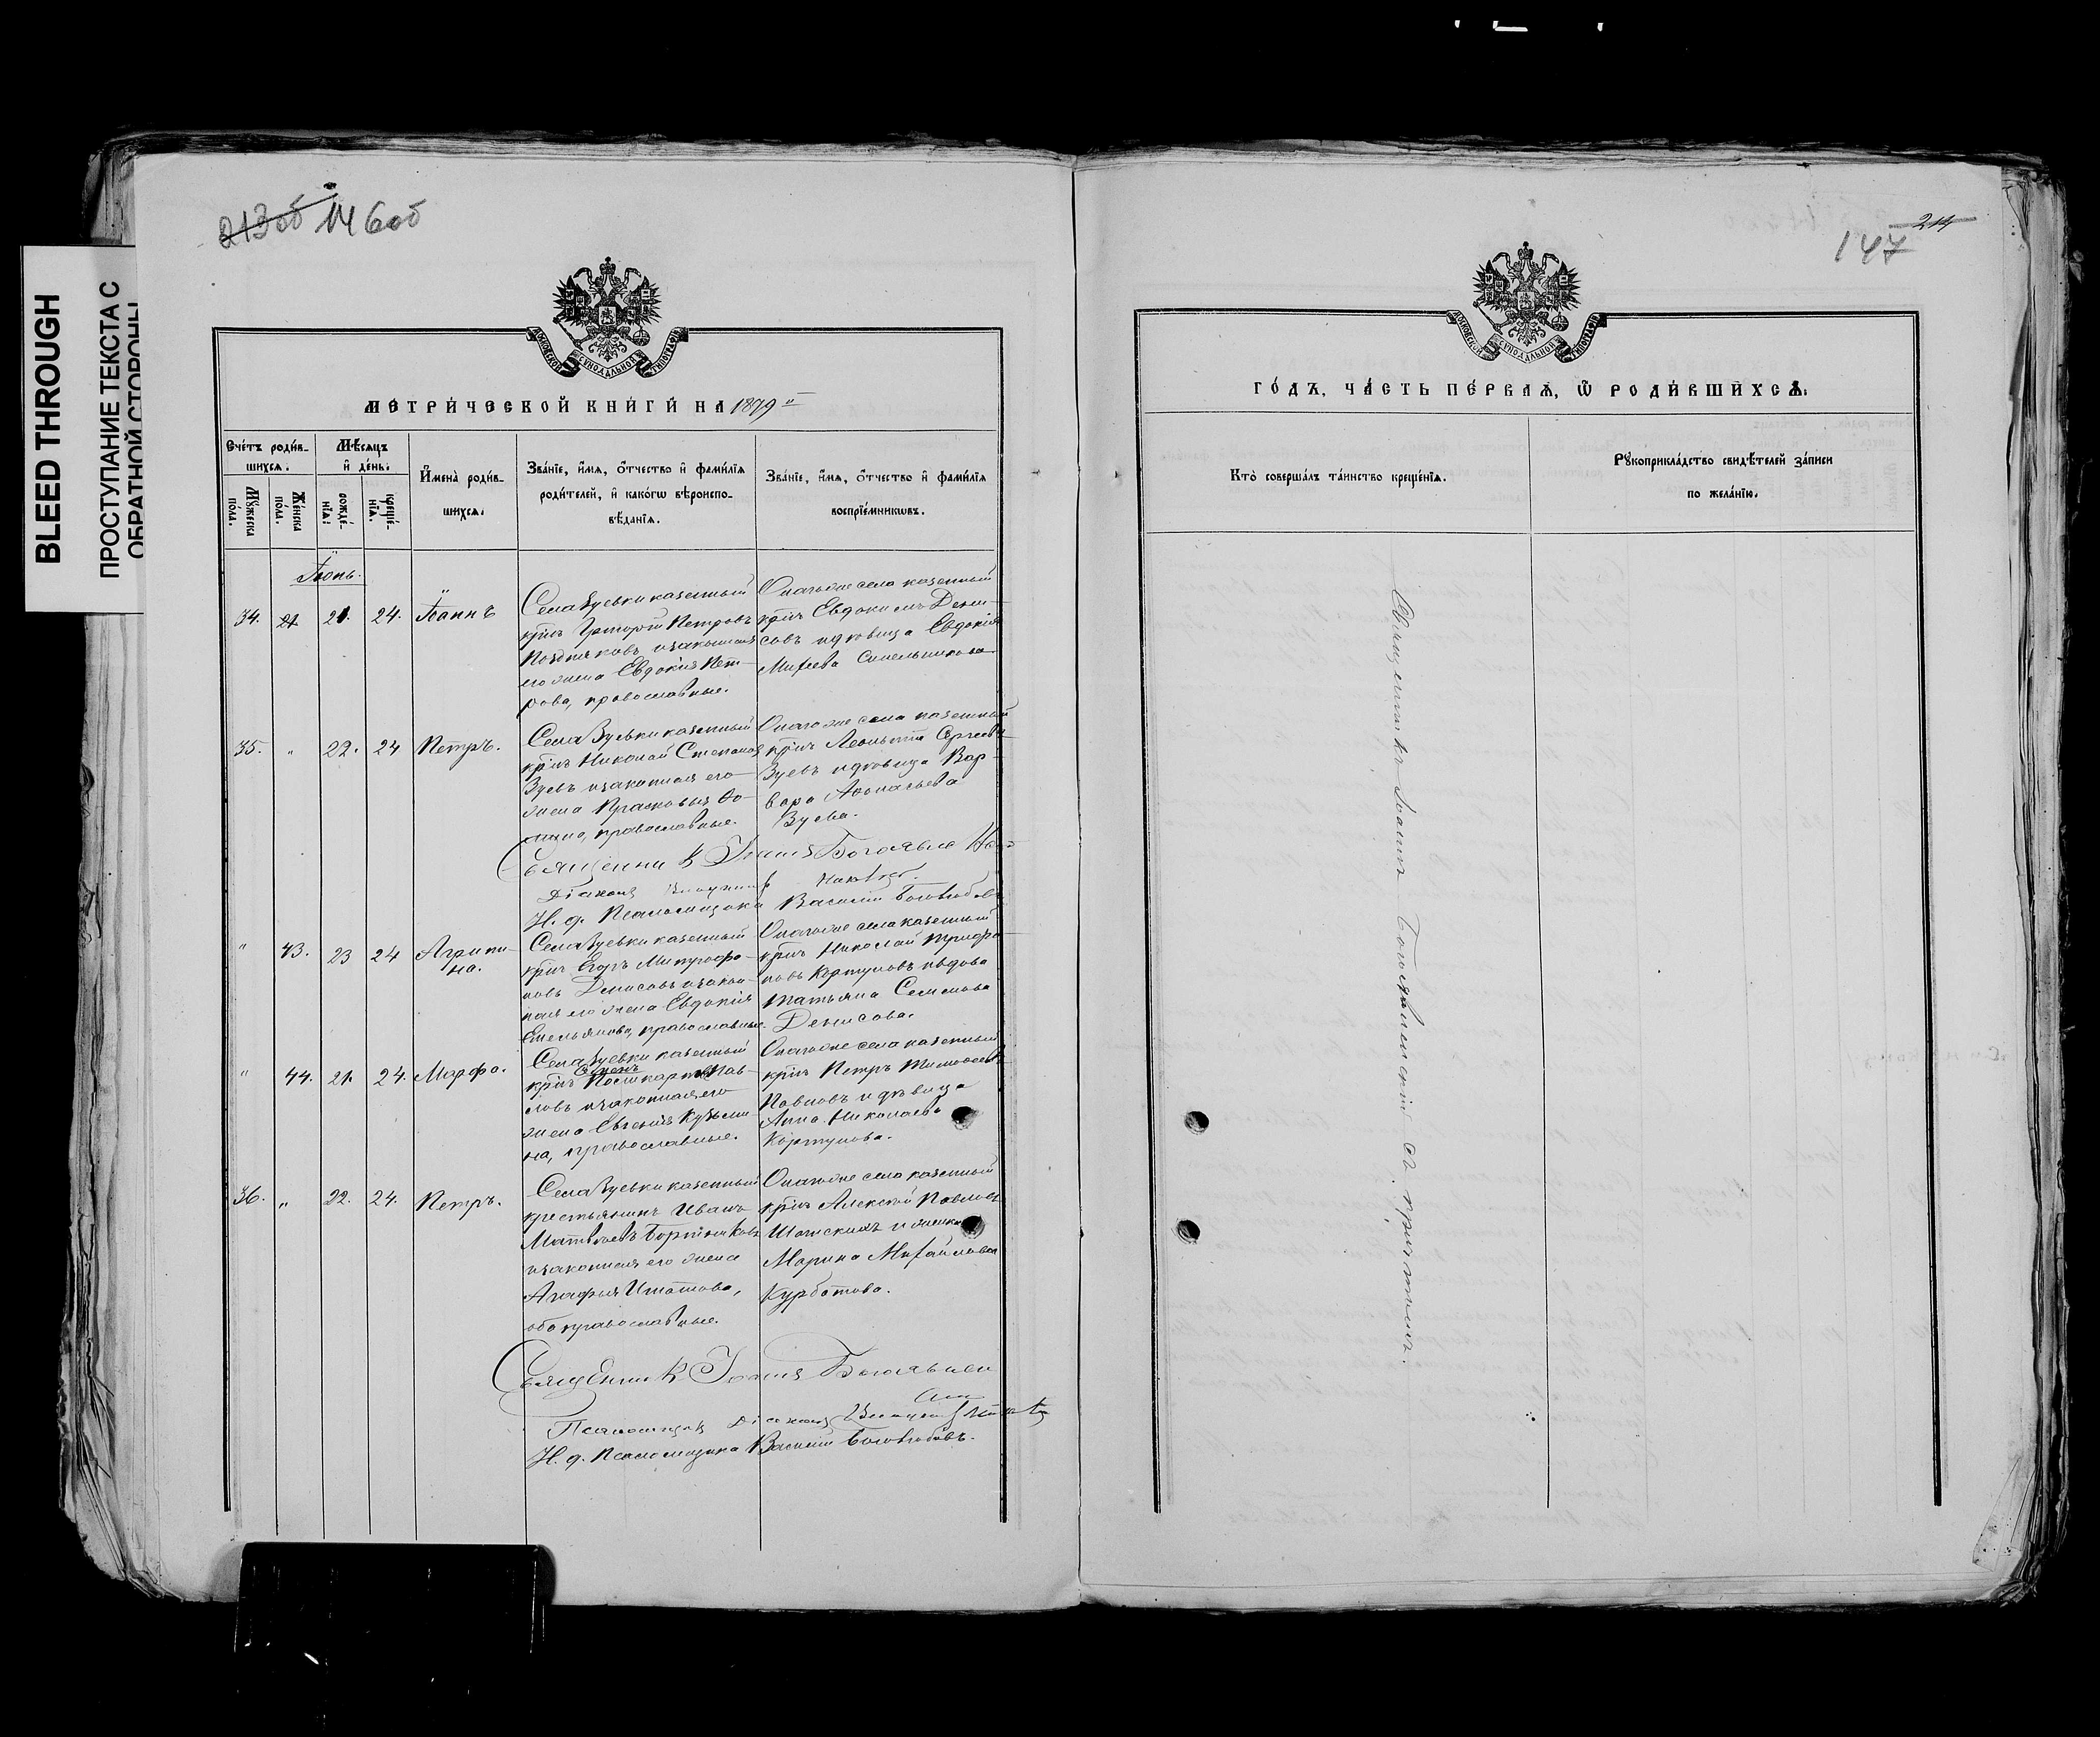 BLEED THROUGH
ПРОСТУПАНИЕ ТЕКСТА С
ОБРАТНОЙ СТОРОНЫ
213об 146об
МОСКОВСКОЙ СѴНОДАЛЬНОЙ ТИПОГРАФІИ
МЕТРИ́ЧЕСКОЙ КНИ́ГИ НА 1879
Сче́тъ роди́в-
шихсѧ.
Мꙋ́жеска
по́ла.
Же́нска
по́ла.
Мѣ́сѧцъ
и҆ де́нь.
рожде́-
нїѧ.
креще́-
нїѧ.
И҆мена̀ роди́в-
шихсѧ.
Зва́нїе, и҆́мѧ, ѻ҆́тчество и҆ фами́лїѧ
роди́телей, и҆ како́гѡ вѣроиспо-
вѣ́данїѧ.
Зва́нїе, и҆́мѧ, ѻ҆́тчество и҆ фами́лїѧ
воспрїе́мникѡвъ.
Іюнь.
34. 21. 24. Іоаннъ
Села Зуевки казенный
крн͠ъ Григорій Петровъ
Поздняковъ и законная
его жена Евдокія Пет-
рова, православные.
Онагоже села казенный
крн͠ъ Евдокимъ Дени-
совъ и дѣвица Евдокія
Михеева Синельникова
35. " 22. 24 Петръ.
Села Зуевки казенный
крн͠ъ Николай Степановъ
Зуевъ и законная его
жена Прасковья Ѳо-
мина, православные.
Онагоже села казенный
крн͠ъ Леонтій Сергеевъ
Зуевъ и дѣвица Вар-
вара Аѳонасьева
Зуева.
Священникъ Іоаннъ Богоявленскій
Діаконъ
И. д. Псаломщика Василій Боголюбовъ
" 43. 23 24 Агрипи-
на.
Села Зуевки казенный
крн͠ъ Егоръ Митрофа-
новъ Денисовъ и закон-
ная его жена Евдокія
Емельянова, православные.
Онагоже села казенный
крн͠ъ Николай Трифо-
новъ Кортуновъ и вдова
Татьяна Семенова
Денисова.
" 44. 21. 24. Марфа.
Села Зуевки казенный
крн͠ъ Пав-
ловъ и законная его
жена Евгенія Кузьми-
на, православные.
Онагоже села казенный
крн͠ъ Петръ Тимофеевъ
Павловъ и дѣвица
Анна Николаева
Кортунова.
36. " 22. 24. Петръ.
Села Зуевки казенный
крестьянинъ Иванъ
Матвѣевъ Бортниковъ
и законная его жена
Агафья Игнатова,
оба православные.
Онагоже села казенный
крн͠ъ Алексей Павловъ
Шатскихъ и
Марина Михайлова
Курбатова.
Священникъ Іоаннъ Богоявлен
скій
Псаломщикъ Діаконъ
И. д. Псаломщика Василій Боголюбовъ.
214
147
МОСКОВСКОЙ СѴНОДАЛЬНОЙ ТИПОГРАФІИ
ГО́ДЪ, ЧА́СТЬ ПЕ́РВАѦ, Ѡ҆ РОДИ́ВШИХСѦ.
Кто̀ соверша́лъ та́инство креще́нїѧ.
Рꙋкоприкла́дство свидѣ́телей за́писи
по жела́нїю.
Священникъ Іоаннъ Богоявленскій съ причтомъ.